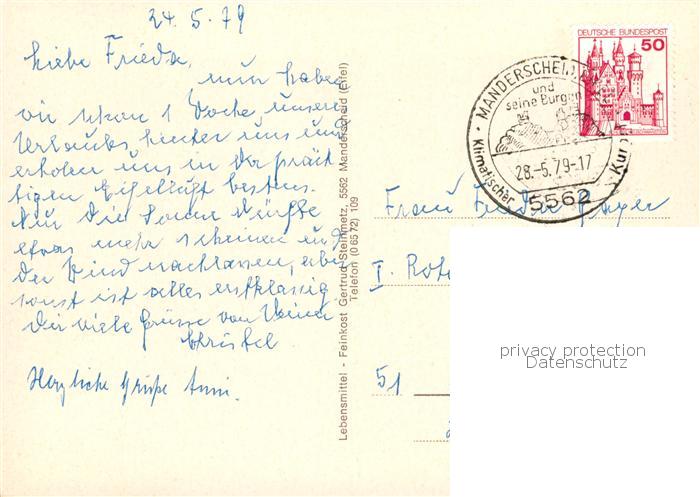 24.5.79
Liebe Frieda,
nun haben
wir schon 1 Woche unseres
Urlaubs hinter uns und
erholen uns in der präch
tigen Eifelluft bestens.
Nur die Sonne dürfte
etwas mehr scheinen und
der Wind nachlassen, aber
sonst ist alles erstklassig
Dir viele Grüsse von Deiner
Christel
Herzliche Grüße Anni.
Lebensmittel - Feinkost Gertrud Steinmetz, 5562 Manderscheid (Eifel)
Telefon (0 65 72) 109
DEUTSCHE BUNDESPOST
50
MANDERSCHEID
und
seine Burgen
28.-5.79-17
5562
Klimatischer Kurort
Frau Frieda
I. Rote
51
privacy protection
Datenschutz